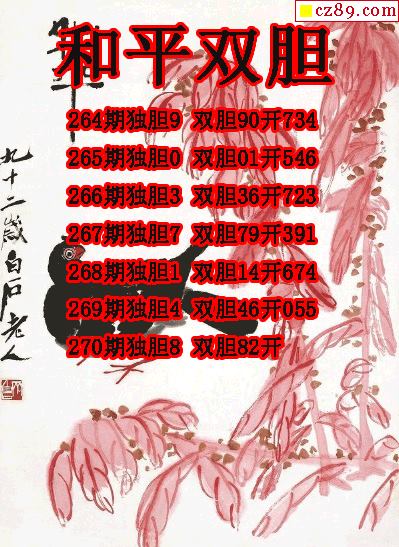 cz89.com
和平双胆
264期独胆9 双胆90开734
265期独胆0 双胆01开546
266期独胆3 双胆36开723
267期独胆7 双胆79开391
268期独胆1 双胆14开674
269期独胆4 双胆46开055
270期独胆8 双胆82开
九十二岁白石老人